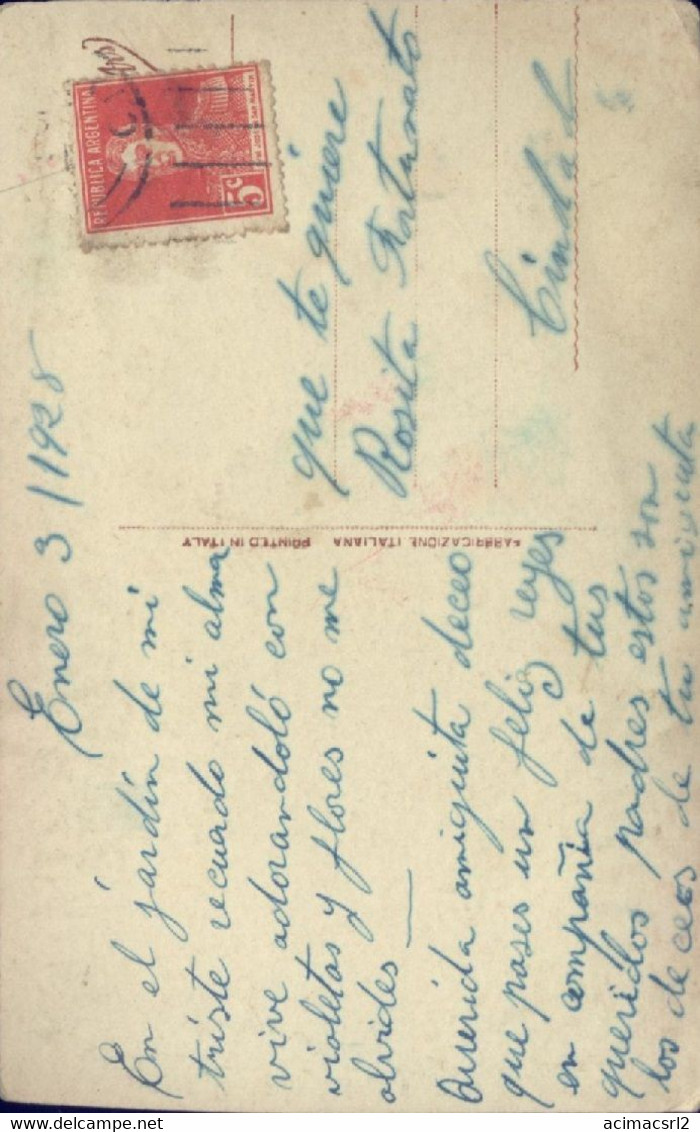 Enero 3/1928
En el jardín de mi
triste recuado mi alma
vive adorandoló con
violetas y flores no me
olvides —
Querida amiguita deceo
que pases un feliz reyes
en compañia de tus
queridos padres estos son
los deceos de tu amiguita
que te quiere
Rosita Fortunato
Ciudad
REPUBLICA ARGENTINA
5c
FABBRICAZIONE ITALIANA PRINTED IN ITALY
delcampe.net
acimacsrl2